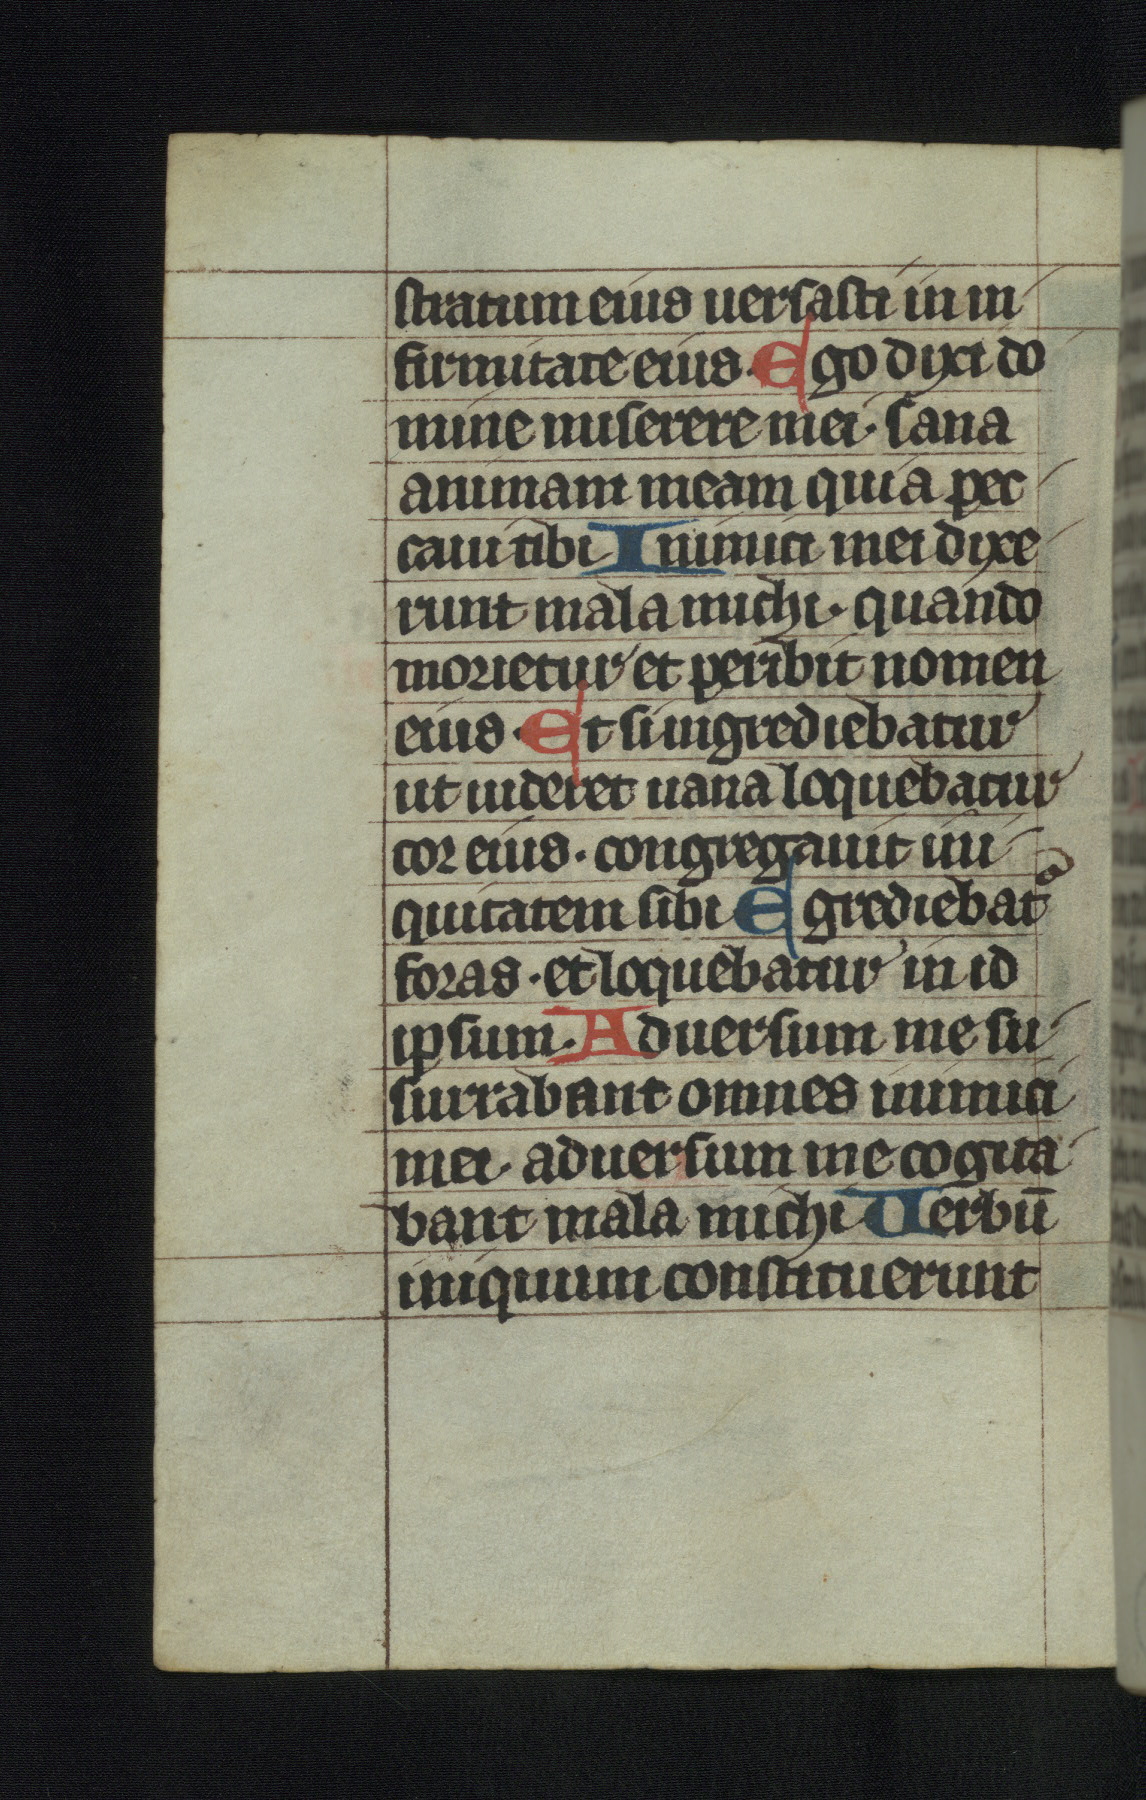 stratum eius uersasti in in
firmitate eius. Ego dixi do
mine miserere mei. sana
animam meam quia pec
caui tibi Inimici mei dixe
runt mala michi. quando
morietur et peribit nomen
eius. Et si ingrediebatur
ut uideret uana loquebatur
cor eius. congregauit ini
quitatem sibi Egrediebat᷑
foras. et loquebatur in id
ipsum. Aduersum me su
surrabant omnes inimici
mei. aduersum me cogita
bant mala michi Uerbū
iniquum constituerunt